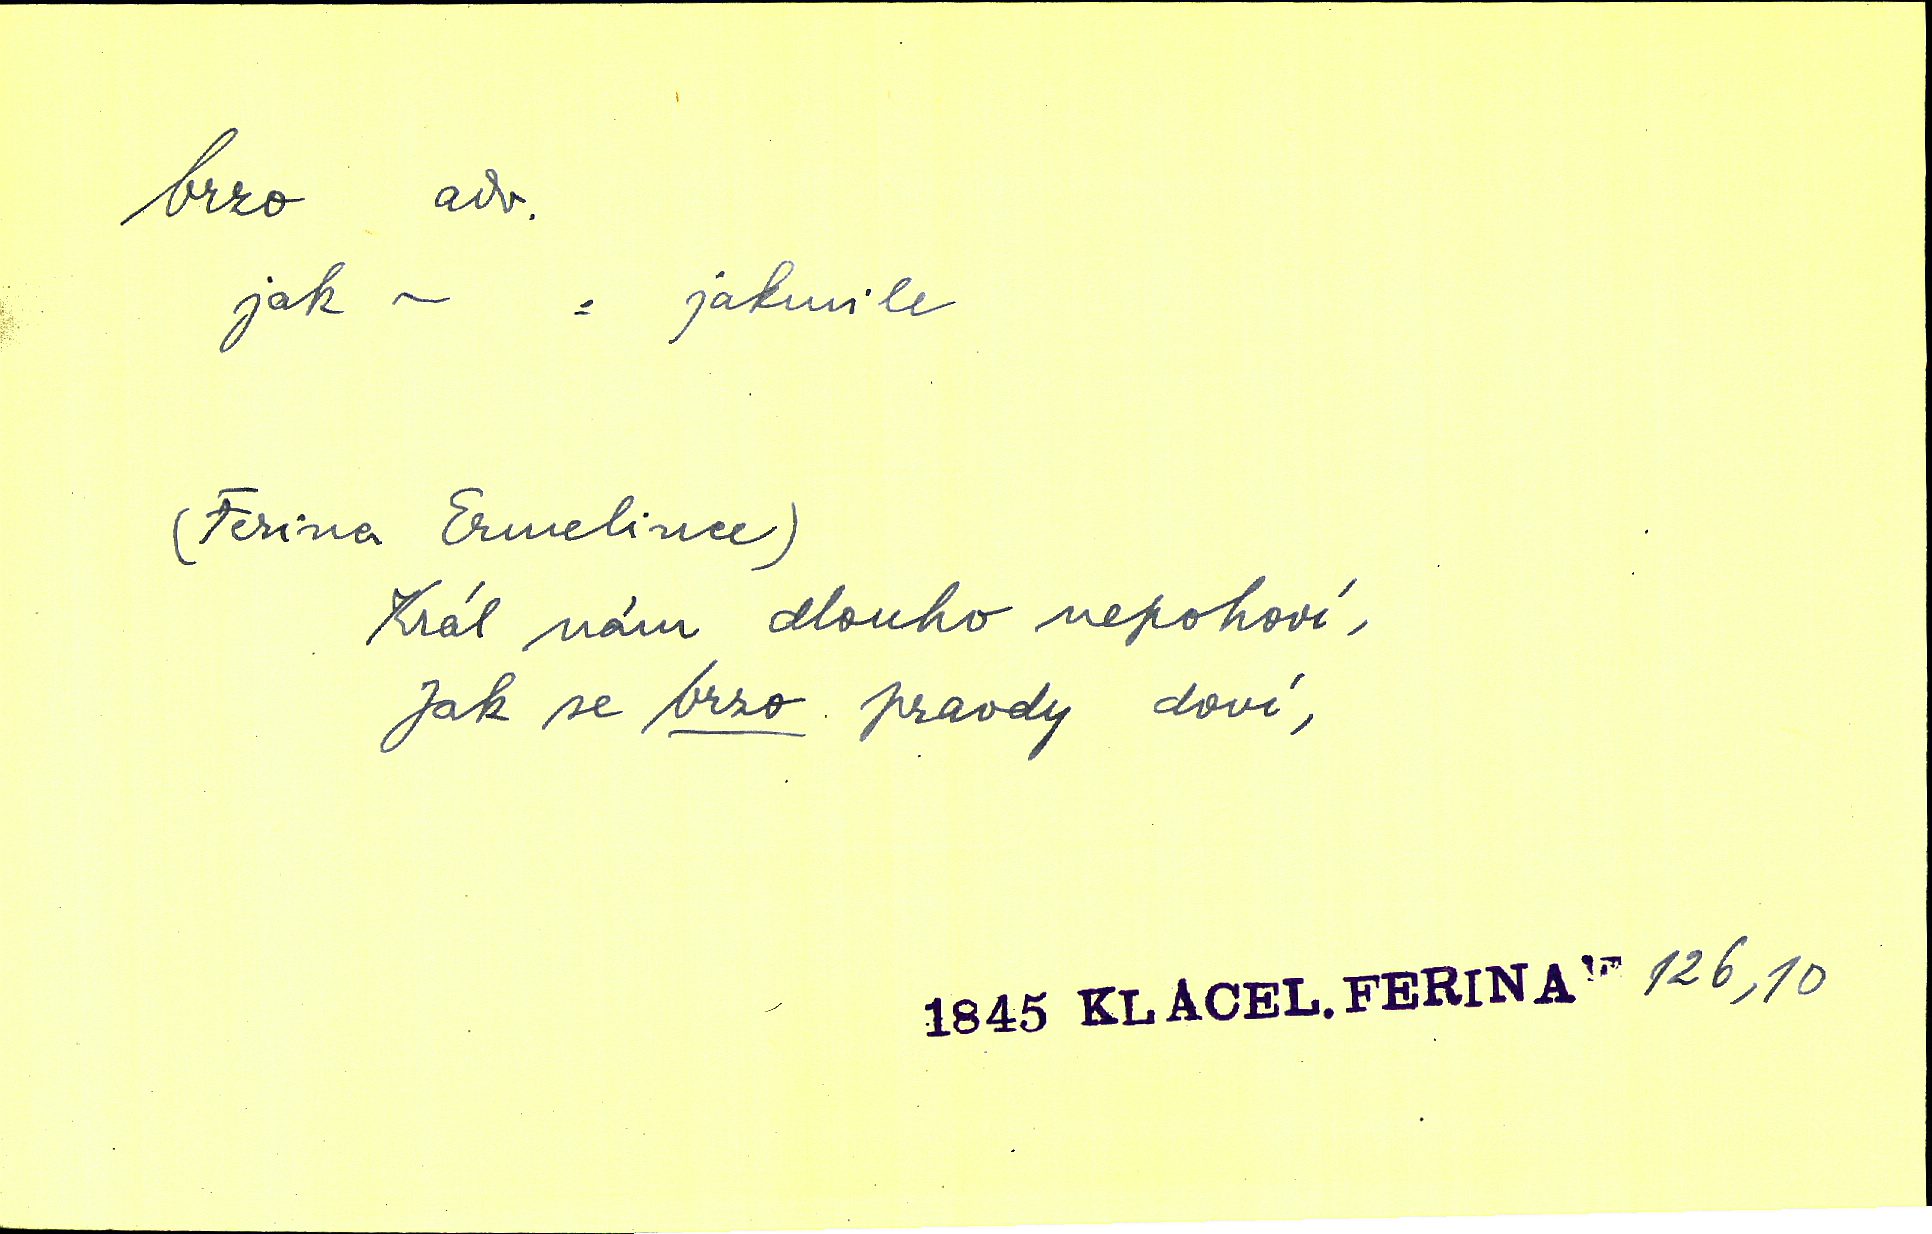 brzo adv.
jak ~ = jakmile
(Ferina Ermelince)
Král nám dlouho nepohoví,
Jak se brzo pravdy doví,
1845 KLACEL. FERINA 126,10